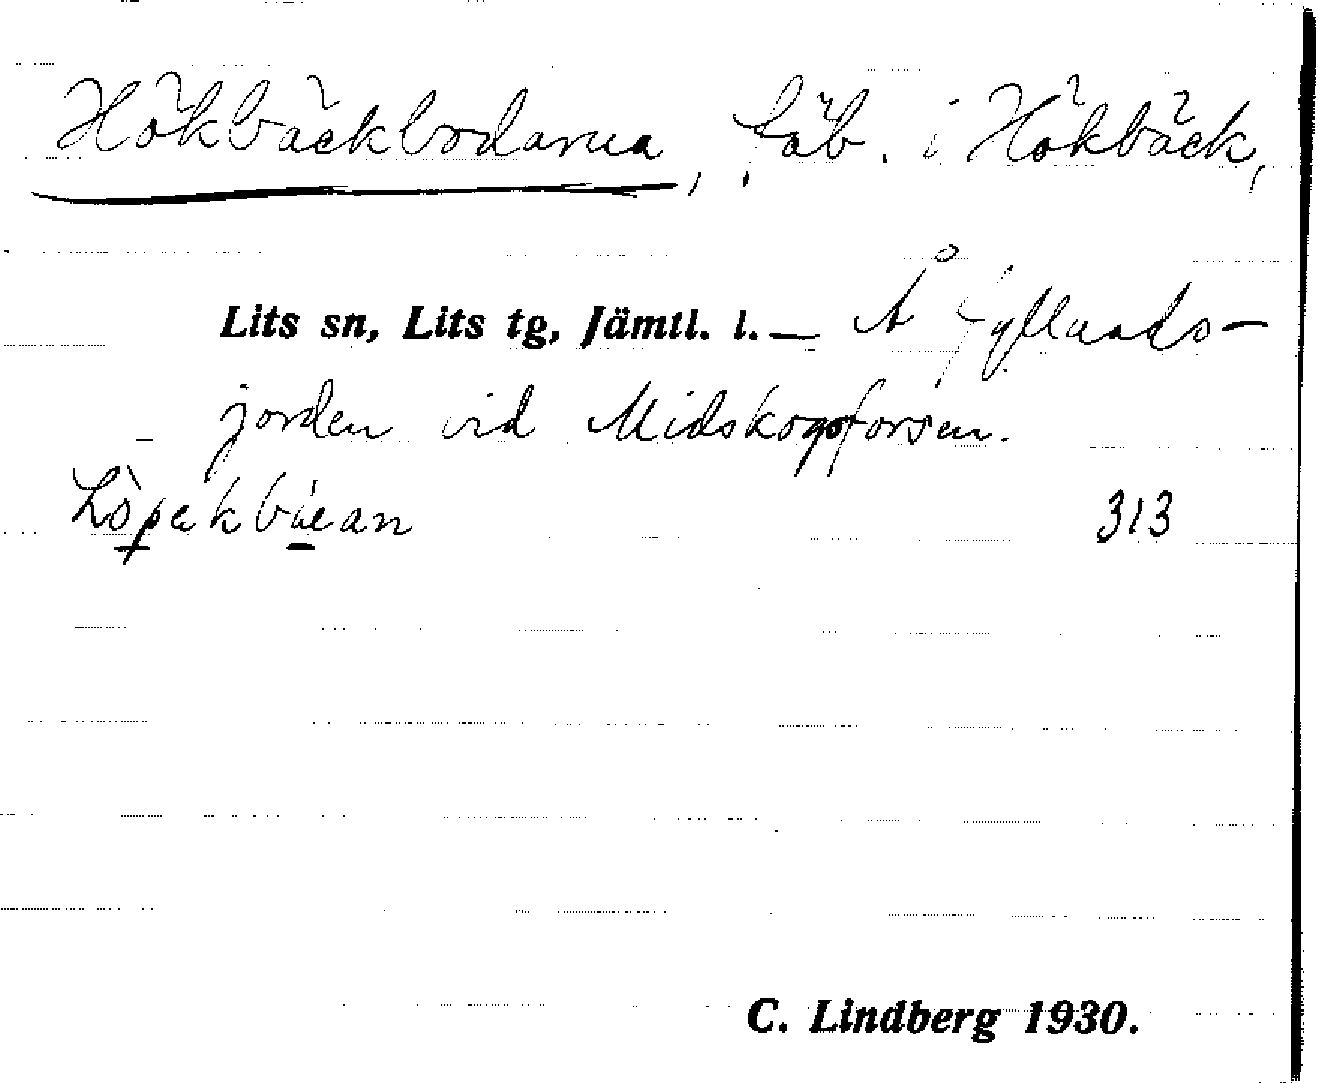 Hökbäckbodarna, fäb. i Hökbäck,
Lits sn, Lits tg, Jämtl. l. — Å Gyllands-
jorden vid Midskogsforsen.
313
C. Lindberg 1930.